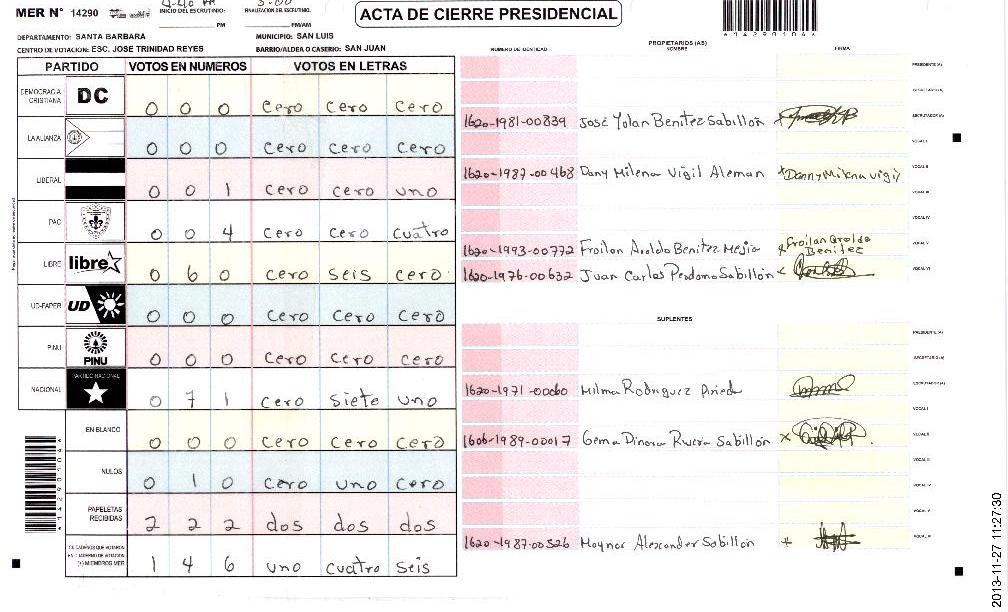 MER N° 14290
INICIO DEL ESCRUTINIO:
FINALIZACION DEL ESCRUTINIO:
PM
PM/AM
ACTA DE CIERRE PRESIDENCIAL
*14290104*
DEPARTAMENTO: SANTA BARBARA
MUNICIPIO: SAN LUIS
CENTRO DE VOTACION: ESC. JOSE TRINIDAD REYES
BARRIO/ALDEA O CASERIO: SAN JUAN
PARTIDO VOTOS EN NUMEROS VOTOS EN LETRAS
DEMOCRACIA CRISTIANA DC 0 0 0 Cero Cero Cero
LA ALIANZA 0 0 0 Cero Cero Cero
LIBERAL 0 0 1 Cero Cero uno
PAC 0 0 4 Cero Cero cuatro
LIBRE libre 0 6 0 cero seis cero
UD-FAPER UD 0 0 0 Cero Cero Cero
PINU PINU 0 0 0 Cero Cero Cero
NACIONAL PARTIDO NACIONAL 0 7 1 Cero Siete uno
EN BLANCO 0 0 0 Cero Cero Cero
NULOS 0 1 0 Cero uno Cero
PAPELETAS RECIBIDAS 2 2 2 dos dos dos
CIUDADANOS QUE VOTARON EN CUADERNO DE VOTACION (+) MIEMBROS MER 1 4 6 uno cuatro seis
*14290104*
NUMERO DE IDENTIDAD
PROPIETARIOS (AS)
NOMBRE
FIRMA
PRESIDENTE(A)
SECRETARIO(A)
1620-1981-00839 José Yolan Benitez Sabillón ESCRUTADOR(A)
VOCAL I
1620-1987-00468 Dany Milena Vigil Aleman Danny Milena Vigil VOCAL II
VOCAL III
VOCAL IV
1620-1993-00772 Froilan Aroldo Benitez Mejia Froilan Aroldo Benitez VOCAL V
1620-1976-00632 Juan Carlos Perdomo Sabillón VOCAL VI
SUPLENTES
PRESIDENTE(A)
SECRETARIO(A)
1620-1971-00060 Milma Rodriguez Pineda ESCRUTADOR(A)
VOCAL I
1606-1989-00017 Gema Dinora Rivera Sabillón VOCAL II
VOCAL III
VOCAL IV
VOCAL V
1620-1987-00326 Maynor Alexander Sabillón VOCAL VI
2013-11-27 11:27:30